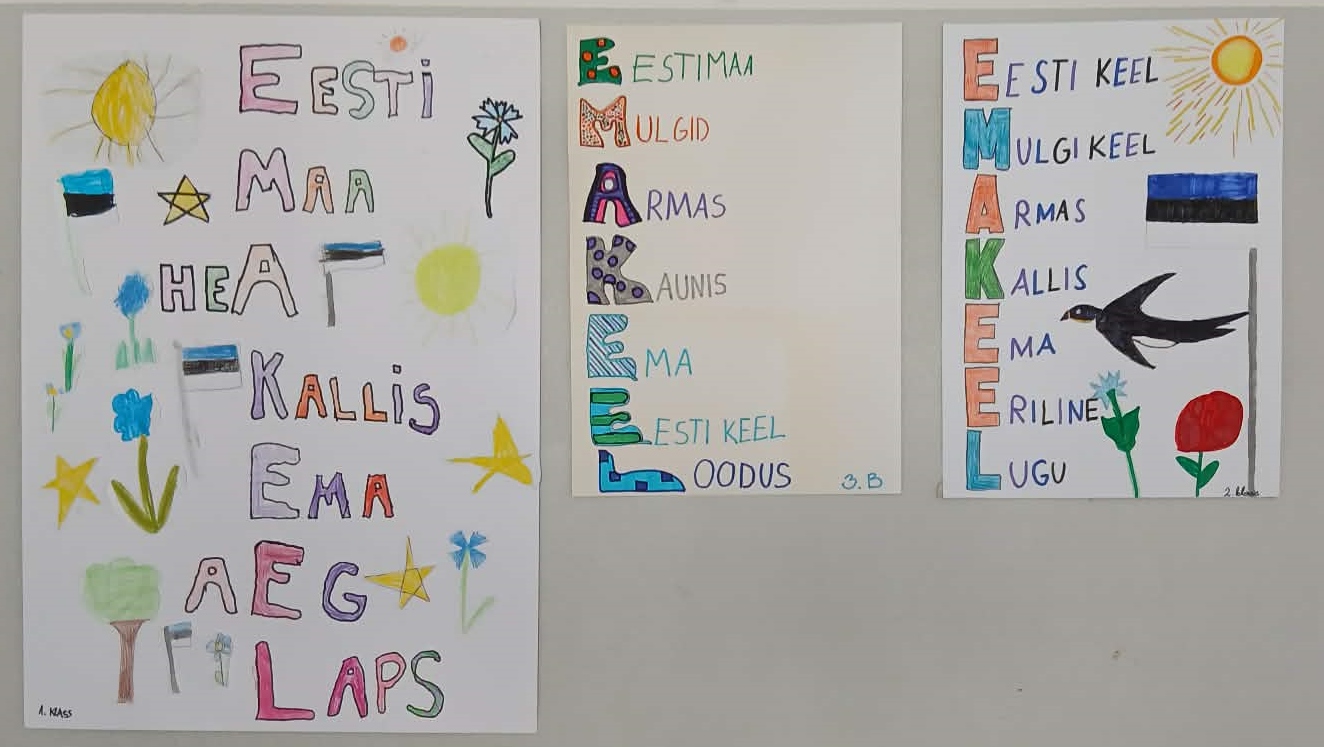 EESTI
MAA
HEA
KALLIS
EMA
AEG
LAPS
1. KLASS
EESTIMAA
MULGID
ARMAS
KAUNIS
EMA
EESTI KEEL
LOODUS
3.B
EESTI KEEL
MULGI KEEL
ARMAS
KALLIS
EMA
ERILINE
LUGU
2. klass